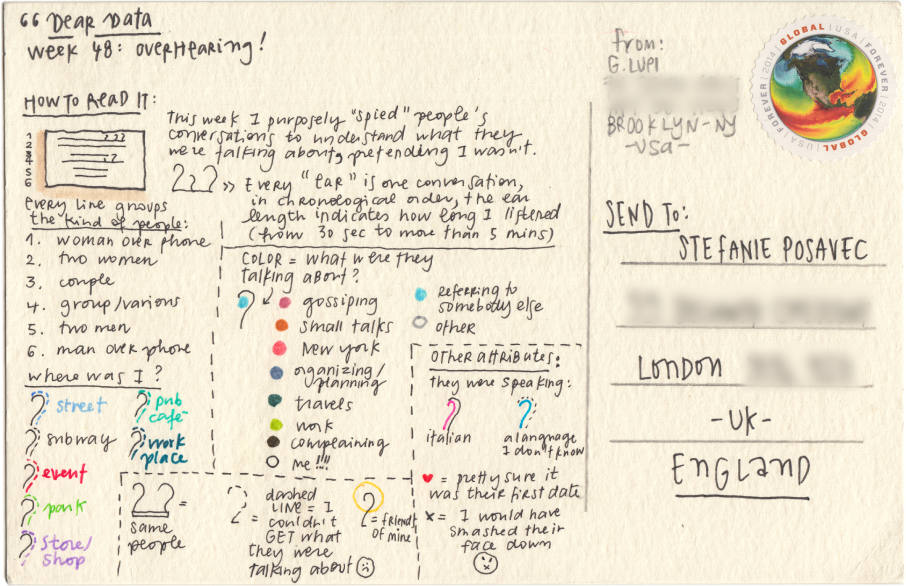 “ DEAR DATA
WEEK 48: OVERHEARING!
HOW TO READ IT:
1
2
3
4
5
6
This week I purposely "spied" people's
conversations to understand what they
were talking about, pretending I wasn't.
>> EVERY "EAR" is one conversation,
in chronological order, the ear
length indicates how long I listened
(from 30 sec to more than 5 mins)
EVERY LINE groups
the kind of people:
1. woman over phone
2. two women
3. couple
4. group/various
5. two men
6. man over phone
where was I?
street
pub
cafè
subway
work
place
event
park
store/
shop
COLOR = what were they
talking about?
gossiping
small talks
New York
organizing/
planning
travels
work
complaining
me!!!!
referring to
somebody else
other
OTHER attributes:
they were speaking:
italian
a language
I don't know
= pretty sure it
was their first date
x = I would have
smashed their
face down
=
same
people
= dashed
LINE = I
couldn't
GET what
they were
talking about
= friend
of mine
from:
G. LUPI
BROOKLYN-NY
-USA-
GLOBAL | USA | FOREVER | 2014 | GLOBAL | USA | FOREVER | 2014
SEND TO:
STEFANIE POSAVEC
LONDON
-UK-
ENGLAND